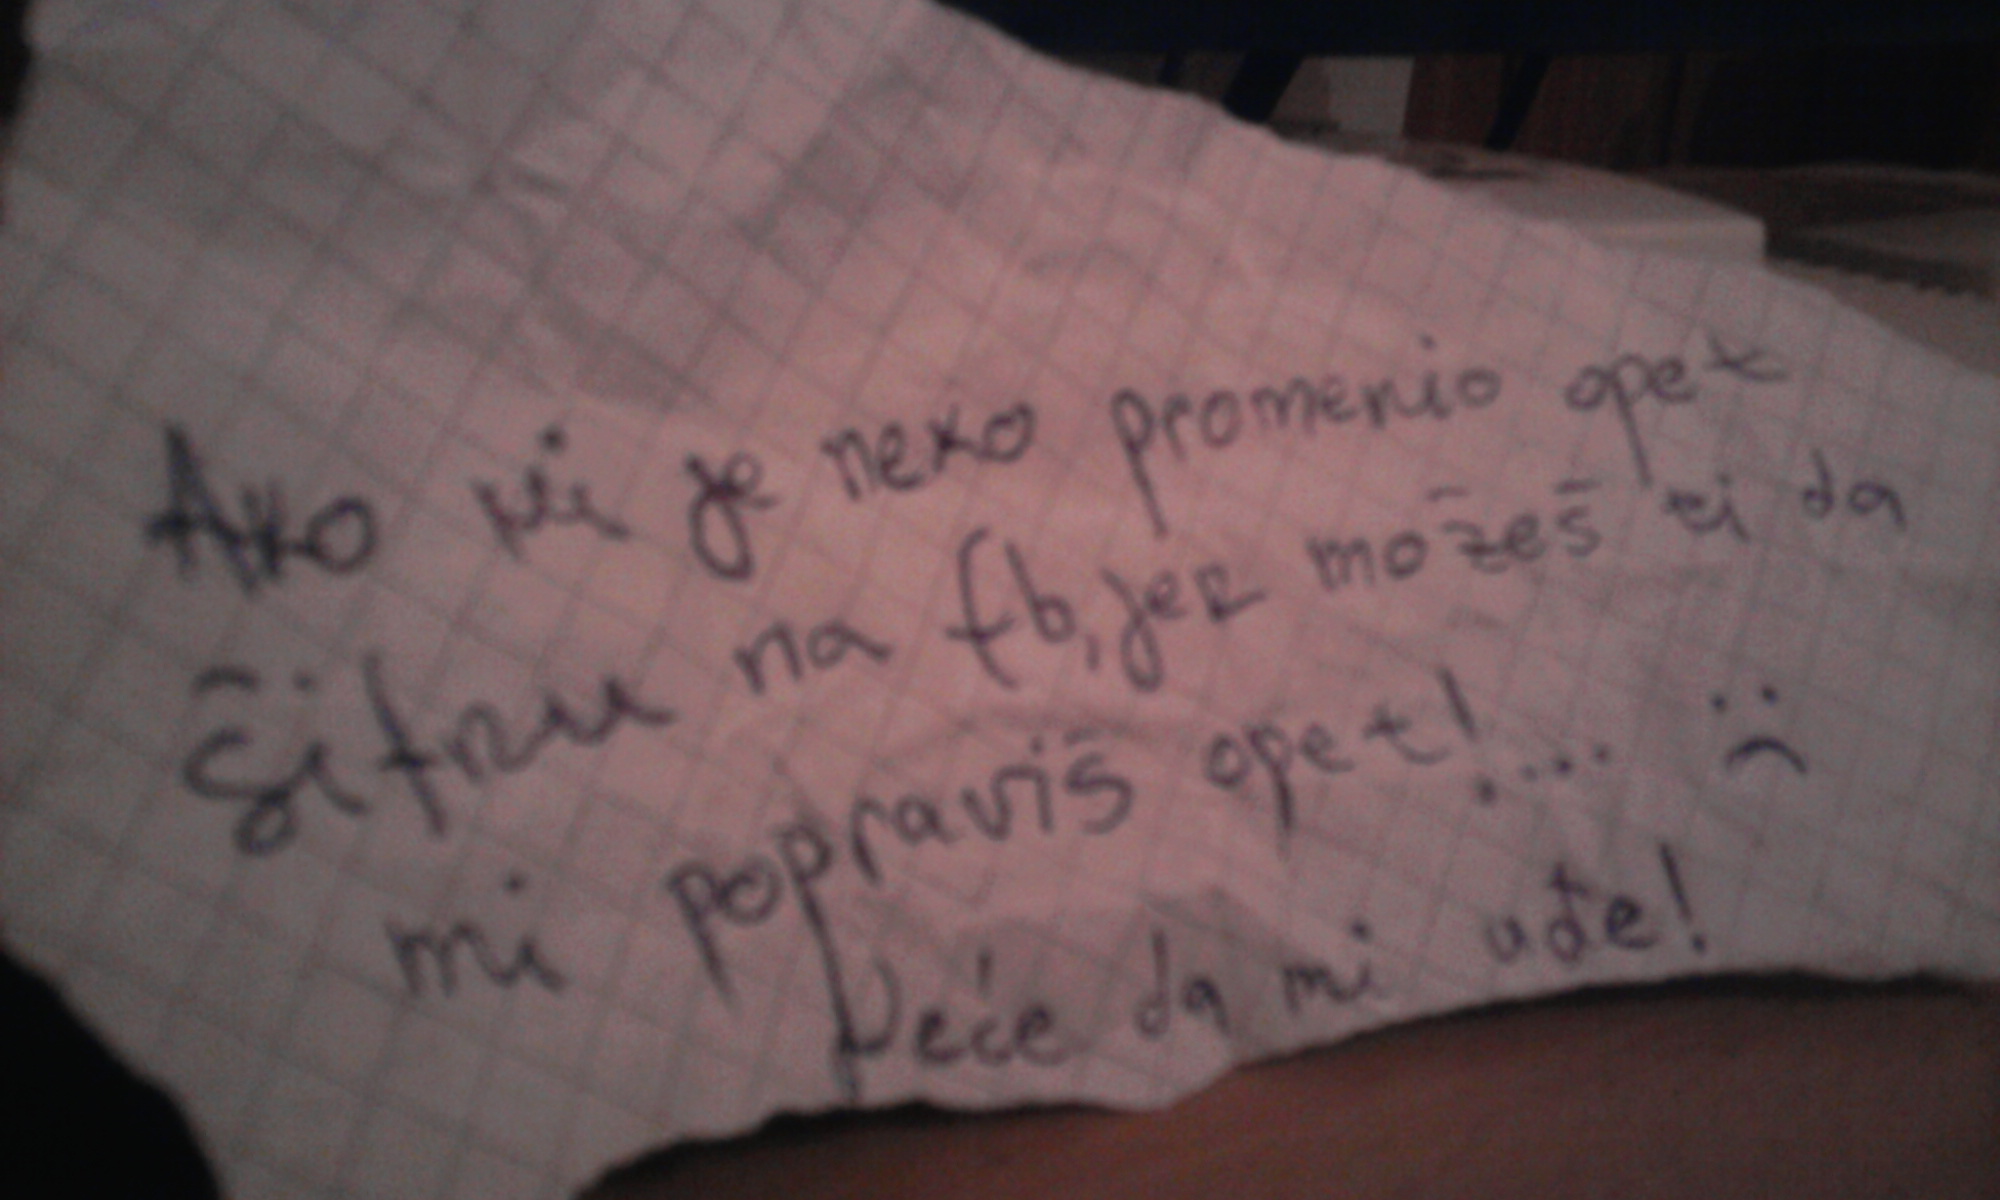 Ako mi je neko promenio opet
šifru na fb, jer možeš ti da
mi popraviš opet!.... :(
Neće da mi uđe!